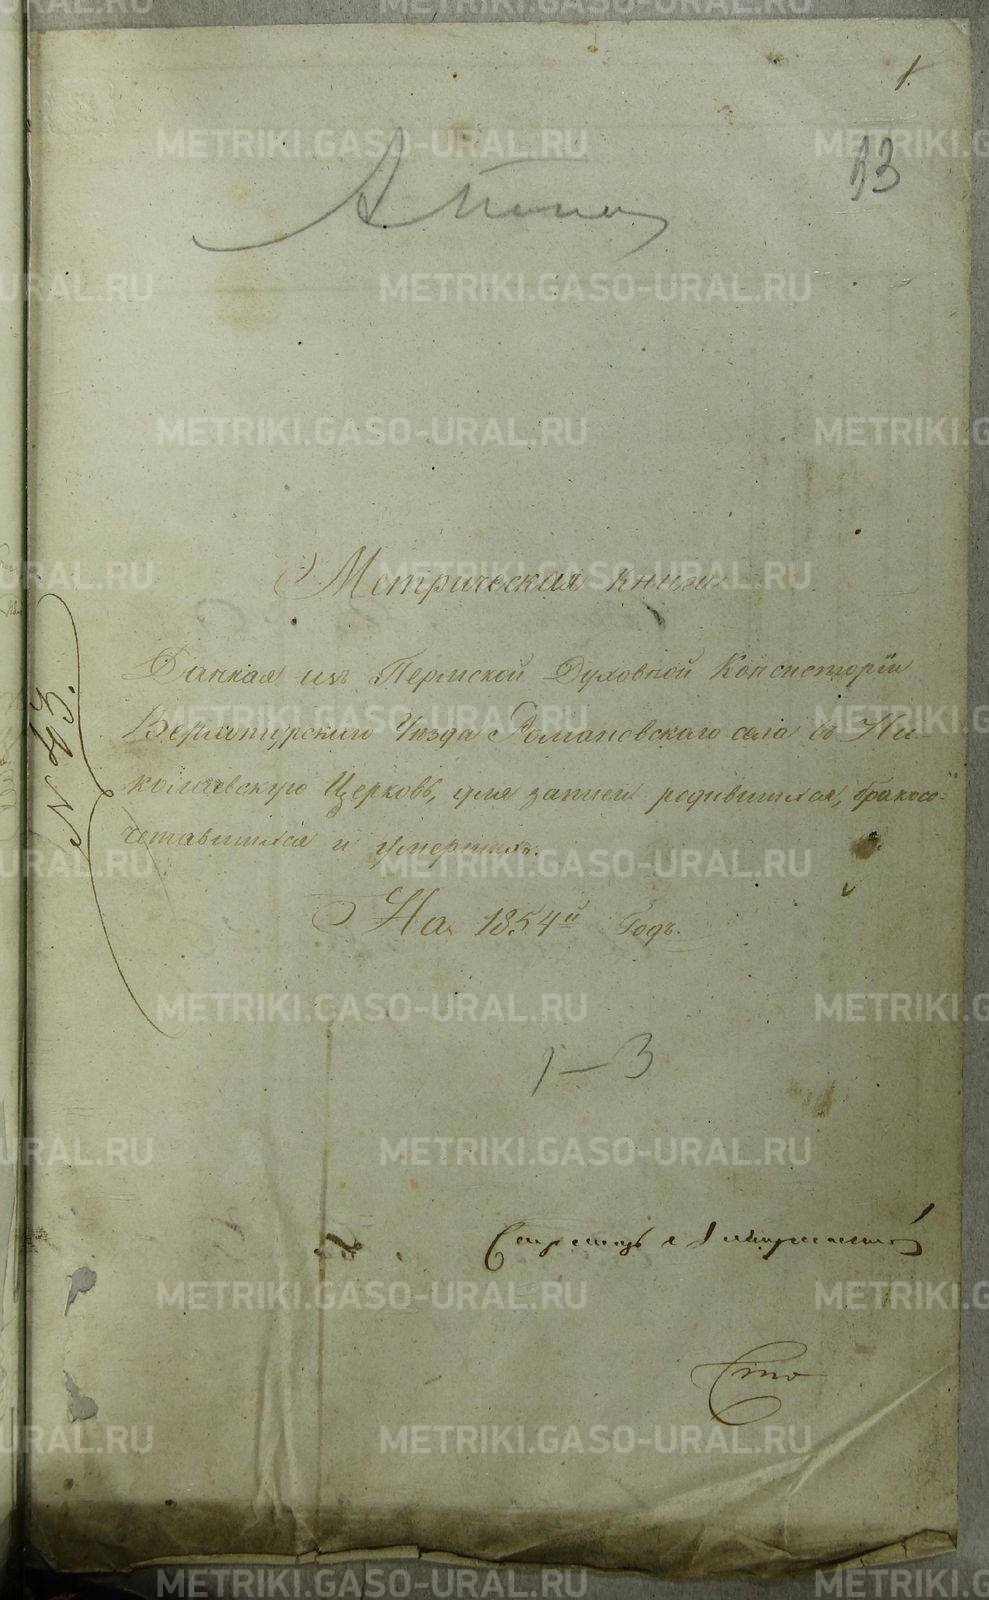 1.
33
Метрическая книга
Данная изъ Пермской Духовной Консисторіи
Верхотурскаго Уезда Романовскаго села въ Ни-
колаевскую Церковь, для записи родившихся, бракосо-
четавшихся и умершихъ.
На 1854й Годъ.
1—3
Сто
METRIKI.GASO-URAL.RU